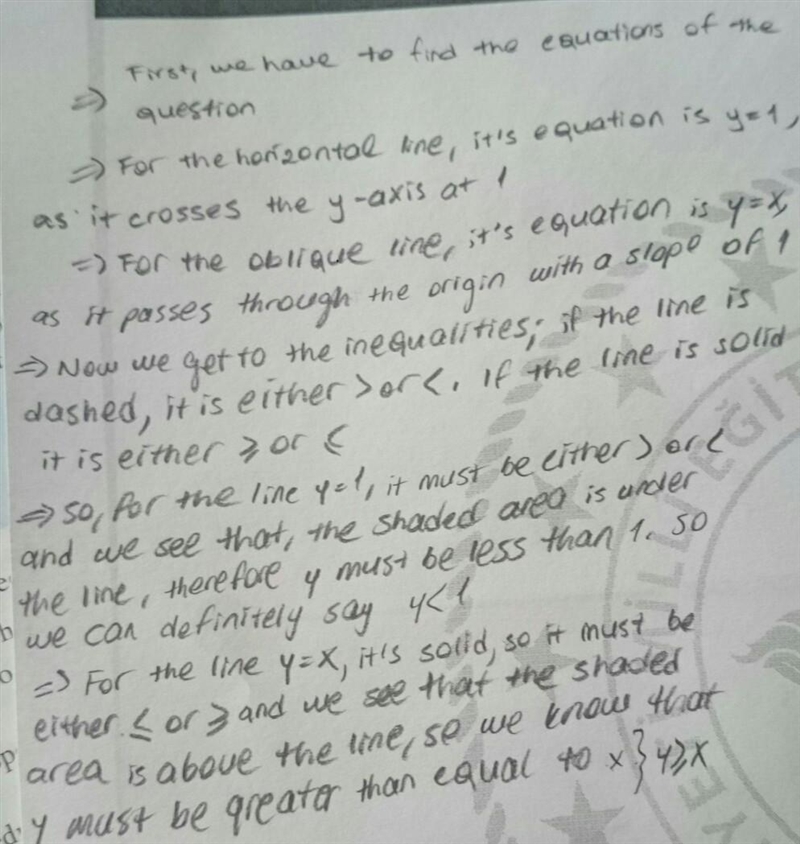 First, we have to find the equations of the
=> question
=> For the horizontal line, it's equation is y=1,
as it crosses the y-axis at 1
=> For the oblique line, it's equation is y=x,
as it passes through the origin with a slope of 1
=> Now we get to the inequalities; if the line is
dashed, it is either > or <. If the line is solid
it is either ⩾ or ⩽
=> so, for the line y=1, it must be either > or <
and we see that, the shaded area is under
the line, therefore y must be less than 1. so
we can definitely say y<1
=> For the line y=x, it's solid, so it must be
either ≤ or ⩾ and we see that the shaded
area is above the line, so we know that
y must be greater than equal to x } y⩾x
MİLLİ EĞİT